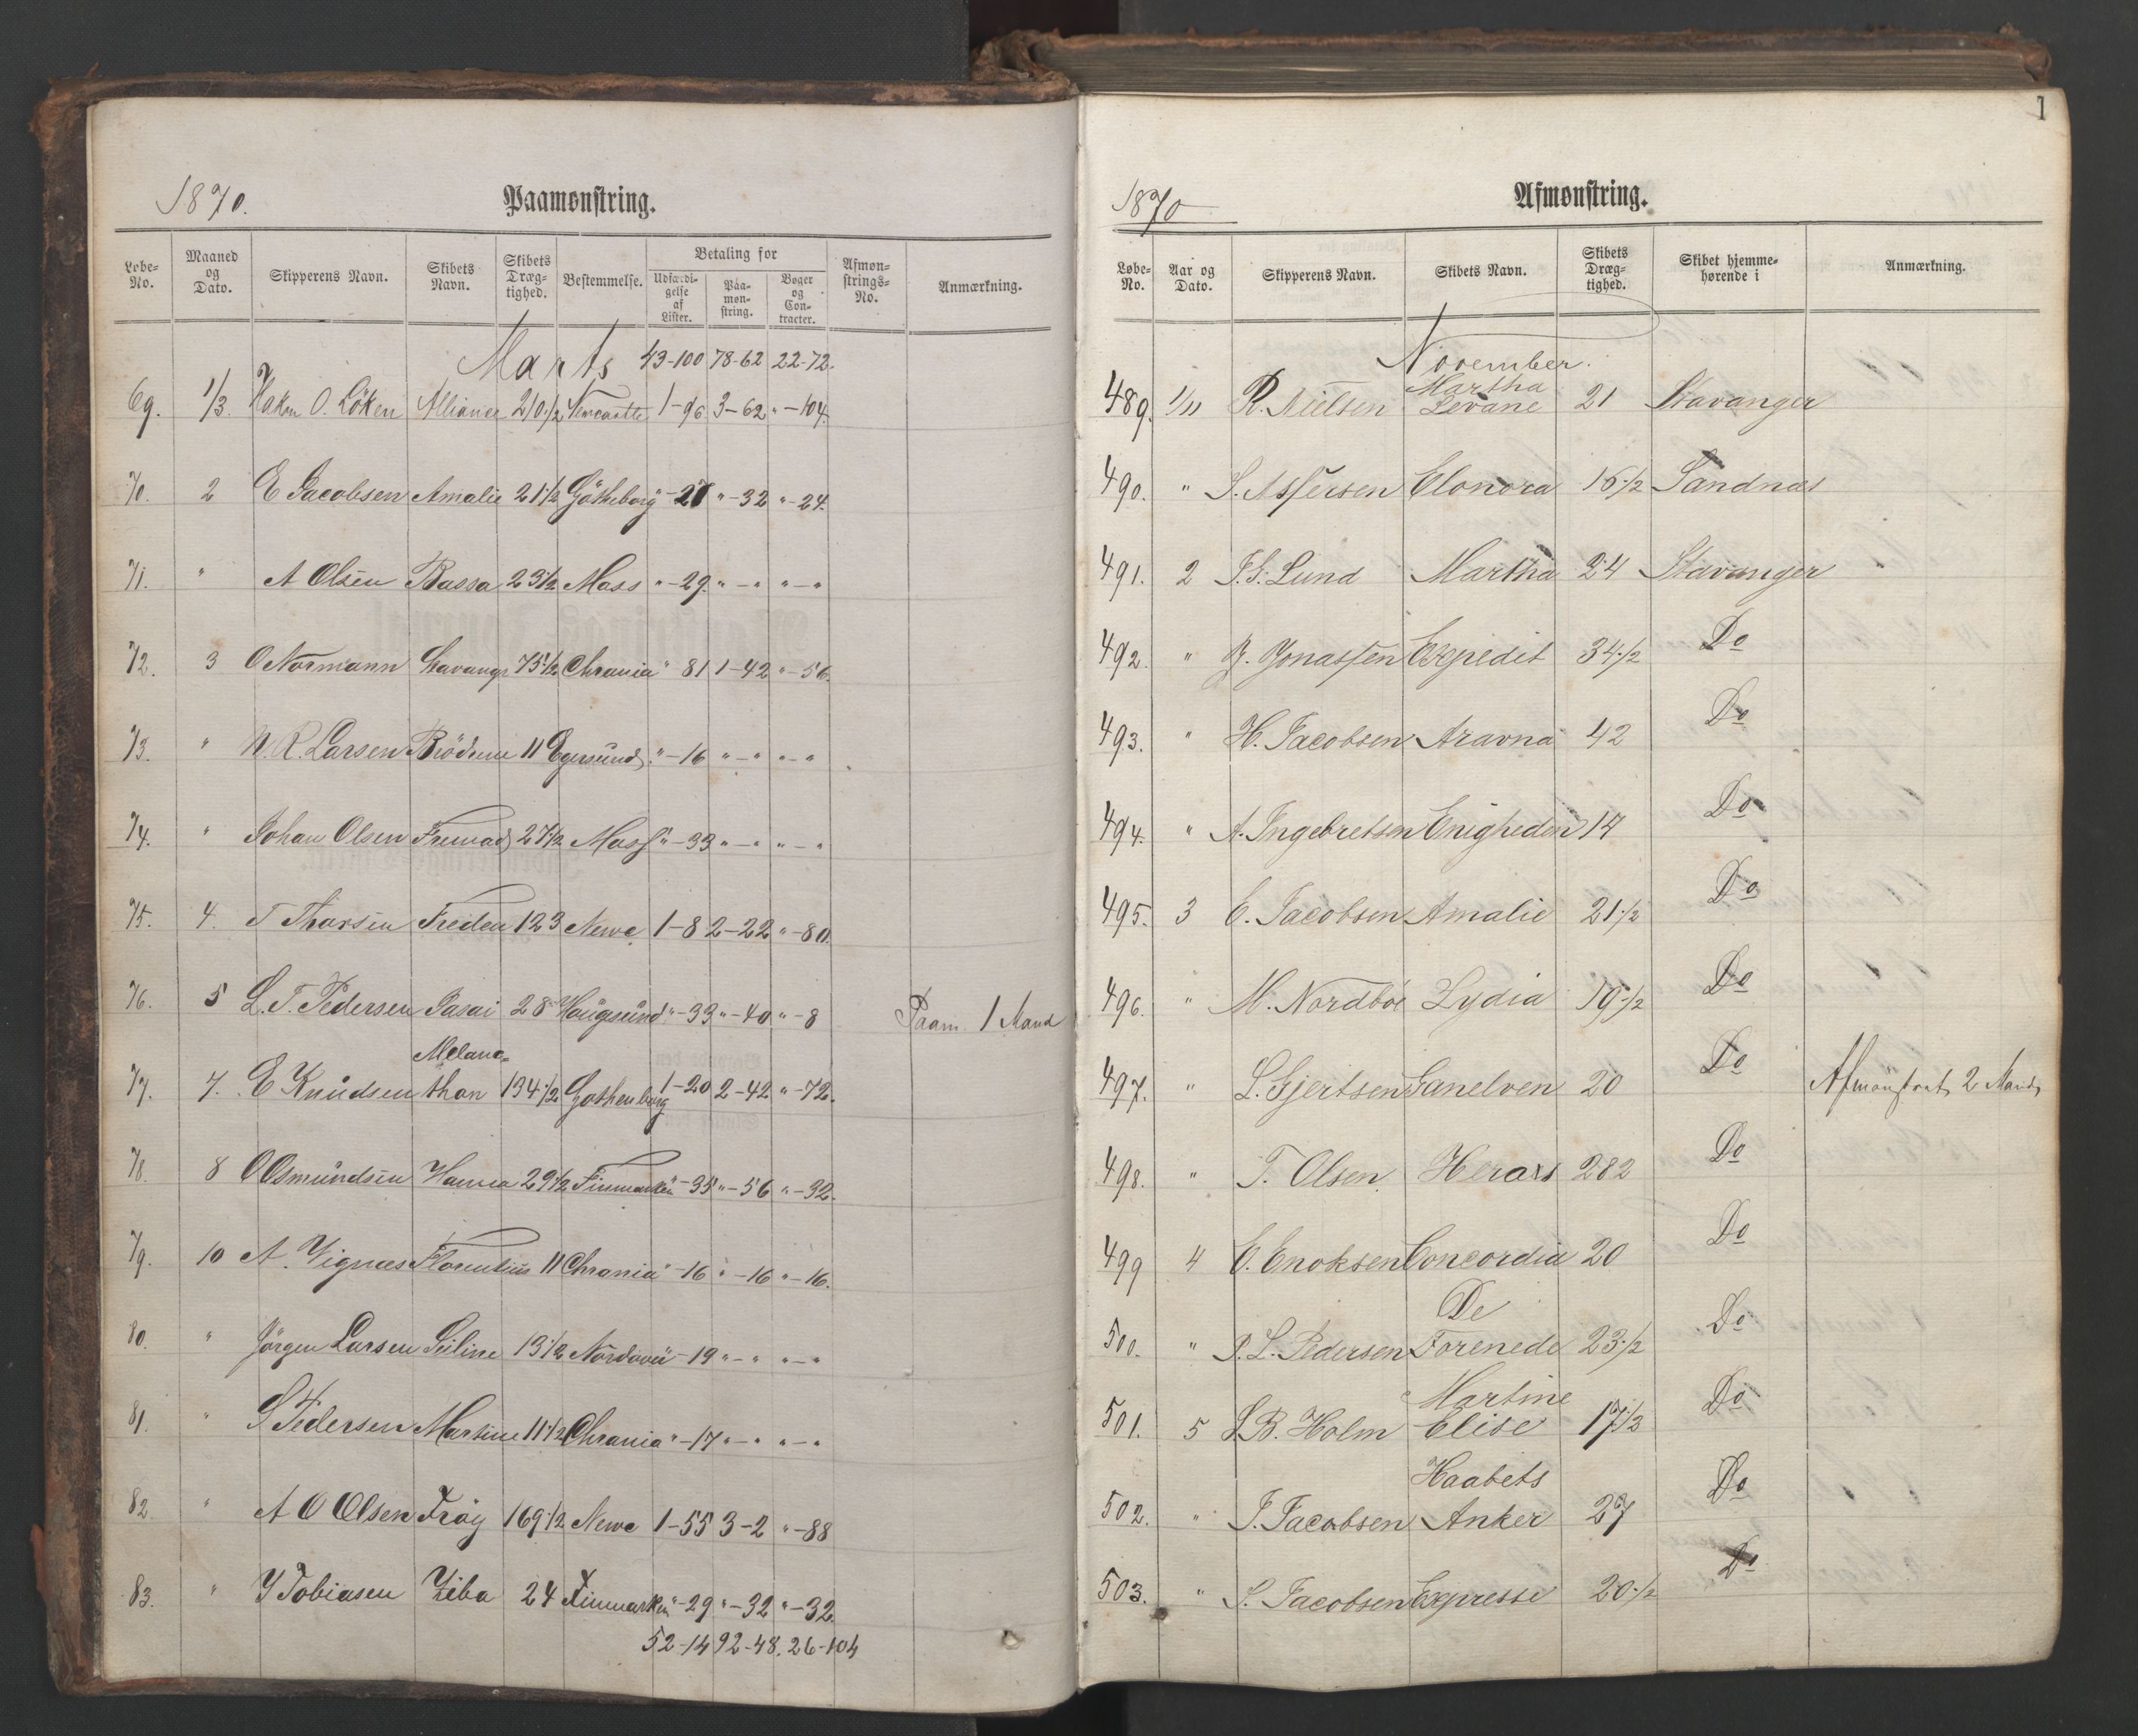 1870.
Paamønstring.
Løbe-No. Maaned og Dato. Skipperens Navn. Skibets Navn. Skibets Dræg-tighed. Bestemmelse. Betaling for Udfærdi-gelse af Lister. Paa-møn-string. Bøger og Con-tracter. Afmøn-strings-No. Anmærkning.
Marts 43-100 78-62 22-72.
69. 1/3. Hakon O. Löken Alliance 210 1/2 Newcastle 1-96 3-62 "-104.
70. 2 E Jacobsen Amalie 21 1/2 Götheborg "-27 "-32 "-24.
71. " A Olsen Bassa 23 1/2 Moss "-29. "-" "-"
72. 3 O Normann Stavangr 75 1/2 Chrania " 81 1-42 "-56.
73. " N. R. Larsen Brödrene 11 Egersund "-16 "-" "-"
74. " Johan Olsen Fremad 27 1/2 Moss "-33 "-" "-"
75. 4. T Thorsen Freden 123 Newc 1-8 2-22 "-80.
76. 5 L. T. Pedersen Pasai 28 Haugesund "-33 "-40 "-8 Paam. 1 Mand
Melanc=
77. 7. E Knudsen thon 134 1/2 Gothenborg 1-20 2-42 "-72.
78. 8 O Osmundsen Hanna 29 1/2 Finmarken "-35 "-56 "-32.
79. 10 A. Vignæs Florentius 11 Chrania "-16 "-16 "-16.
80. " Jörgen Larsen Seline 13 1/2 -19 "-" "-"
81. " S Pedersen Martine 11 1/2 Chrania "-17 "-" "-"
82. " A O Olsen Fröy 169 1/2 Newc 1-55 3-2 "-88
83. " Y Tobiasen Ziba 24 Finmarken "-29 "-32 "-32
52-14 92-48. 26-104
1
1870
Afmønstring.
Løbe-No. Aar og Dato. Skipperens Navn. Skibets Navn. Skibets Dræg-tighed. Skibet hjemme-hørende i Anmærkning.
November.
Martha
489. 1/11 R. Nielsen Levane 21 Stavanger
490. " S. Assersen Elonora 16 1/2 Sandnas
491. 2 J. G. Lund Martha 24 Stavanger
492. " J. Jonassen Expedit 34 1/2 Do
493. " H. Jacobsen Aravna 42 Do
494. " A. Ingebretsen Enigheden 14 Do
495. 3 E. Jacobsen Amalie 21 1/2 Do
496. " M. Nordböe Lydia 19 1/2 Do
497. " L. Gjertsen Ganelven 20 Do Afmönstret 2 Mand
498. " T. Olsen Heraxs 282 Do
499 4 E. Enoksen Concordia 20 Do
De
500. " P. L. Pedersen Forenede 23 1/2 Do
Martine
501. 5 S. B. Holm Elise 17 1/2 Do
Haabets
502. " J. Jacobsen Anker 27 Do
503. " S. Jacobsen Expresse 20 1/2 Do